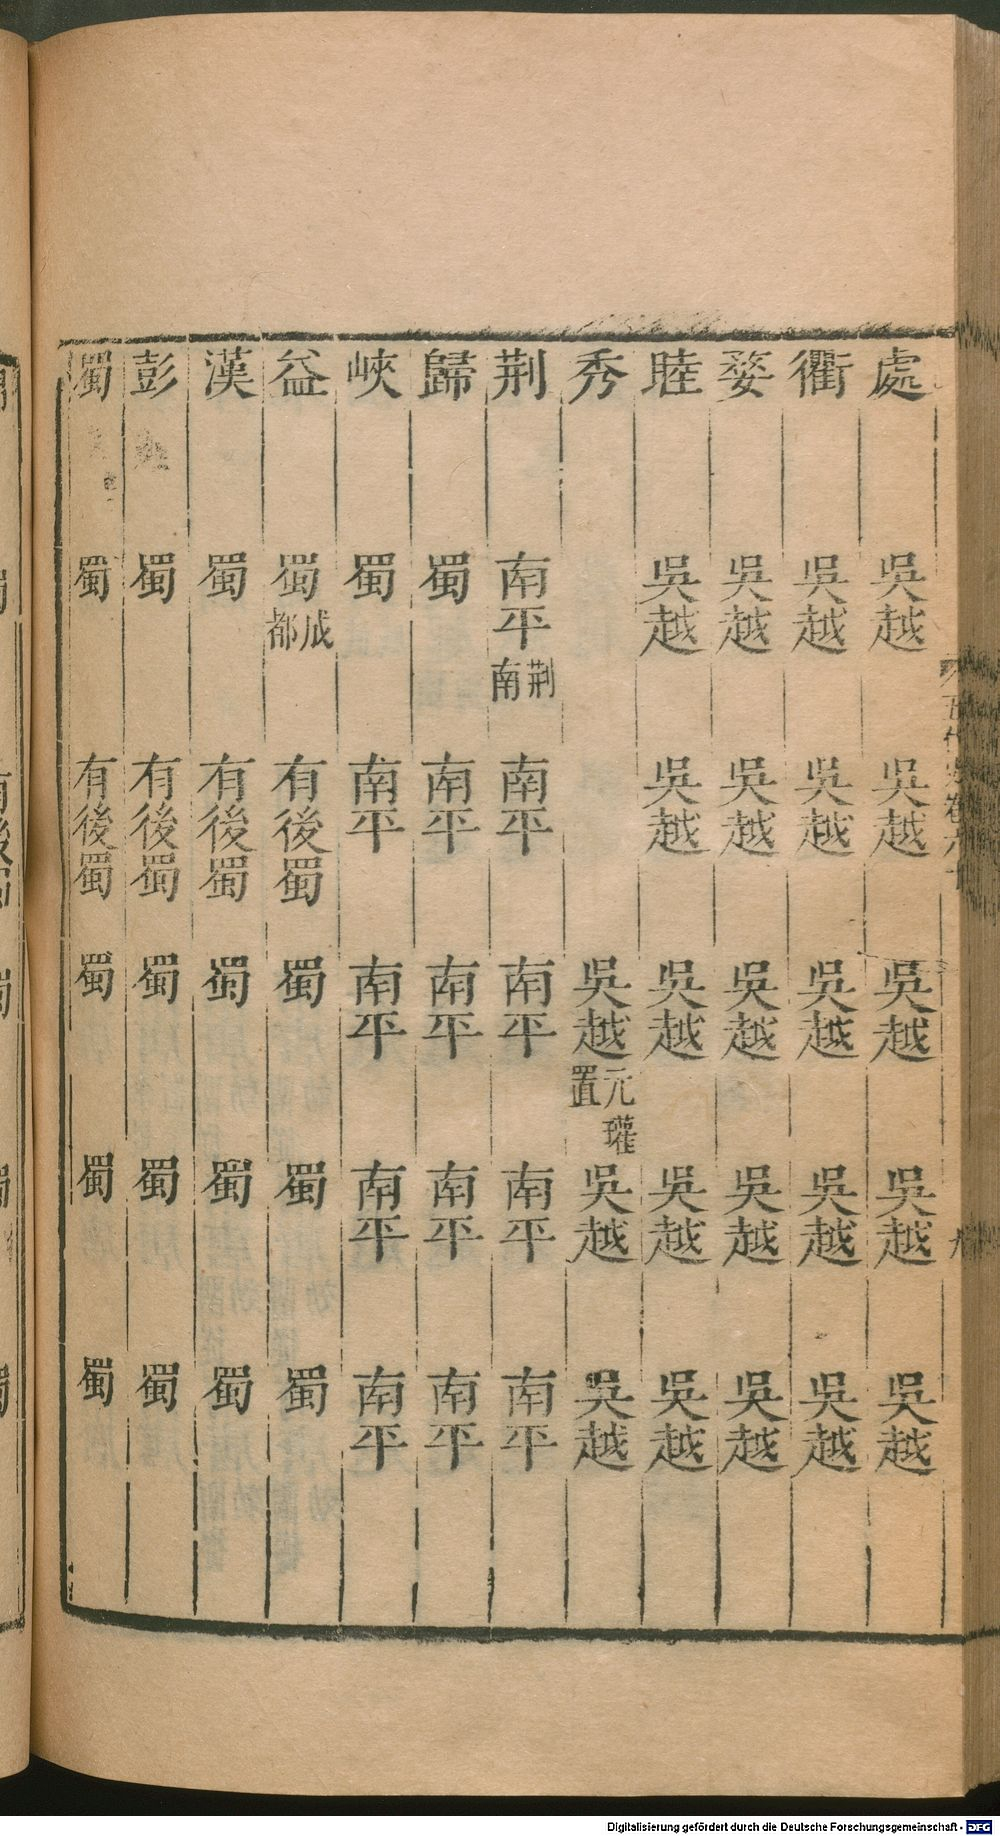 處 吳越 吳越 吳越 吳越 吳越
衢 吳越 吳越 吳越 吳越 吳越
婺 吳越 吳越 吳越 吳越 吳越
睦 吳越 吳越 吳越 吳越 吳越
秀 吳越元瓘置 吳越 吳越
荆 南平荆南 南平 南平 南平 南平
歸 蜀 南平 南平 南平 南平
峽 蜀 南平 南平 南平 南平
益 蜀成都 有後蜀 蜀 蜀 蜀
漢 蜀 有後蜀 蜀 蜀 蜀
彭 蜀 有後蜀 蜀 蜀 蜀
蜀 蜀 有後蜀 蜀 蜀 蜀
Digitalisierung gefördert durch die Deutsche Forschungsgemeinschaft - DFG